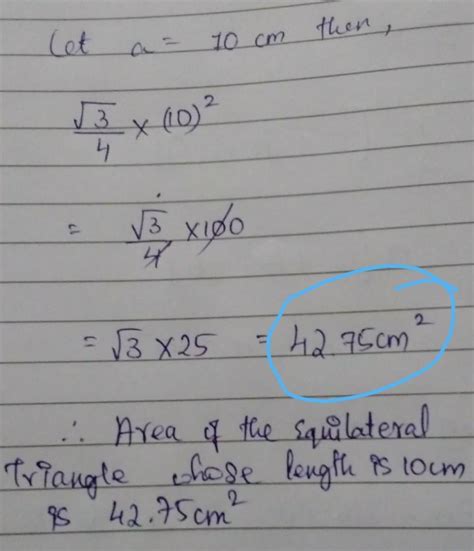 Let a = 10 cm then,
√3/4 × (10)²
= √3/4 × 100
= √3 × 25 = 42.75cm²
∴ Area of the Equilateral
Triangle whose length is 10cm
is 42.75cm²